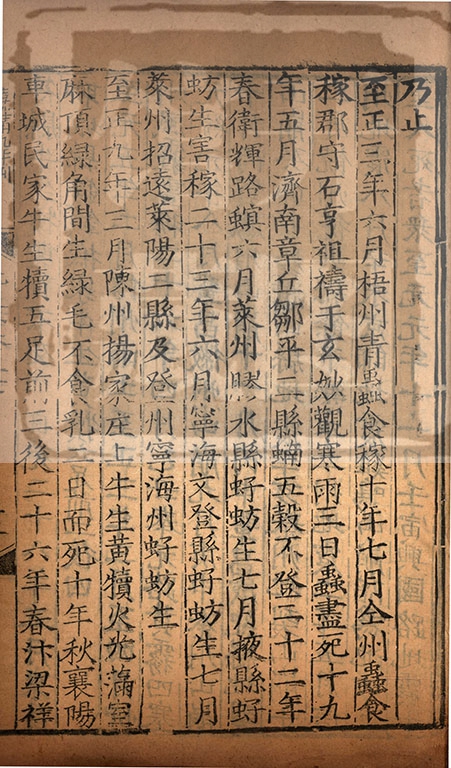 乃止
至正三年六月梧州青蟲食稼十年七月仝州蟲食
稼郡守石亨祖禱于玄妙觀寒雨三日蟲盡死十九
年五月濟南章丘鄒平二縣蝻五穀不登二十二年
春衛輝路螟六月萊州膠水縣虸蚄生七月掖縣虸
蚄生害稼二十三年六月寧海文登縣虸蚄生七月
萊州招遠萊陽二縣及登州寧海州虸蚄生
至正九年三月陳州揚家庄上牛生黃犢火光滿室
麻頂綠角間生綠毛不食乳二日而死十年秋襄陽
車城民家牛生犢五足前三後二十六年春汴梁祥